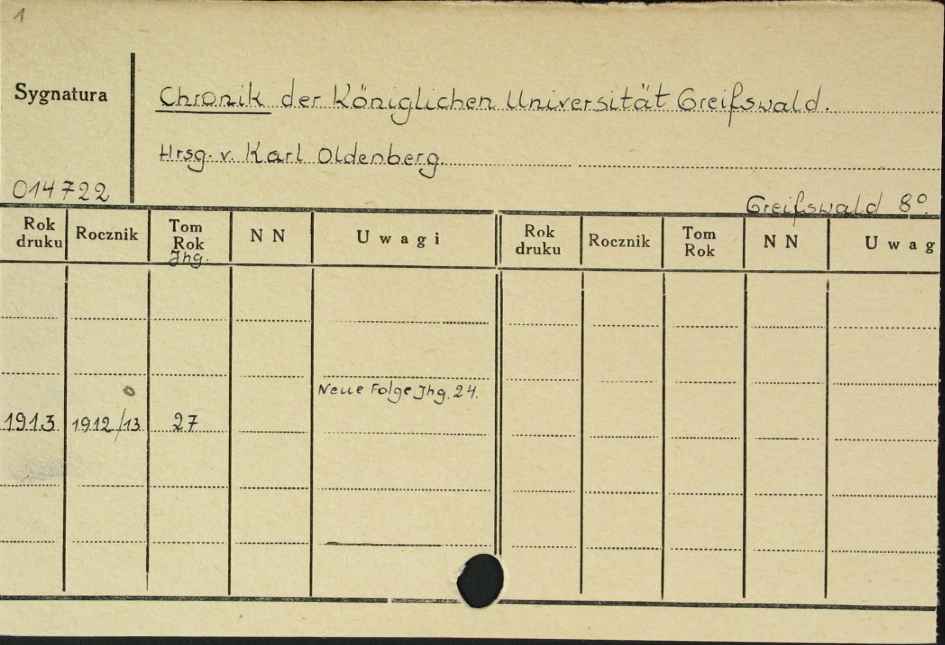 1
Sygnatura
Chronik der Königlichen Universität Greifswald.
Hrsg. v. Karl Oldenberg.
014722
Greifswald 8°
Rok druku Rocznik Tom Rok Jhg. NN Uwagi Rok druku Rocznik Tom Rok NN Uwag
Neue Folge Jhg. 24.
1913 1912/13 27